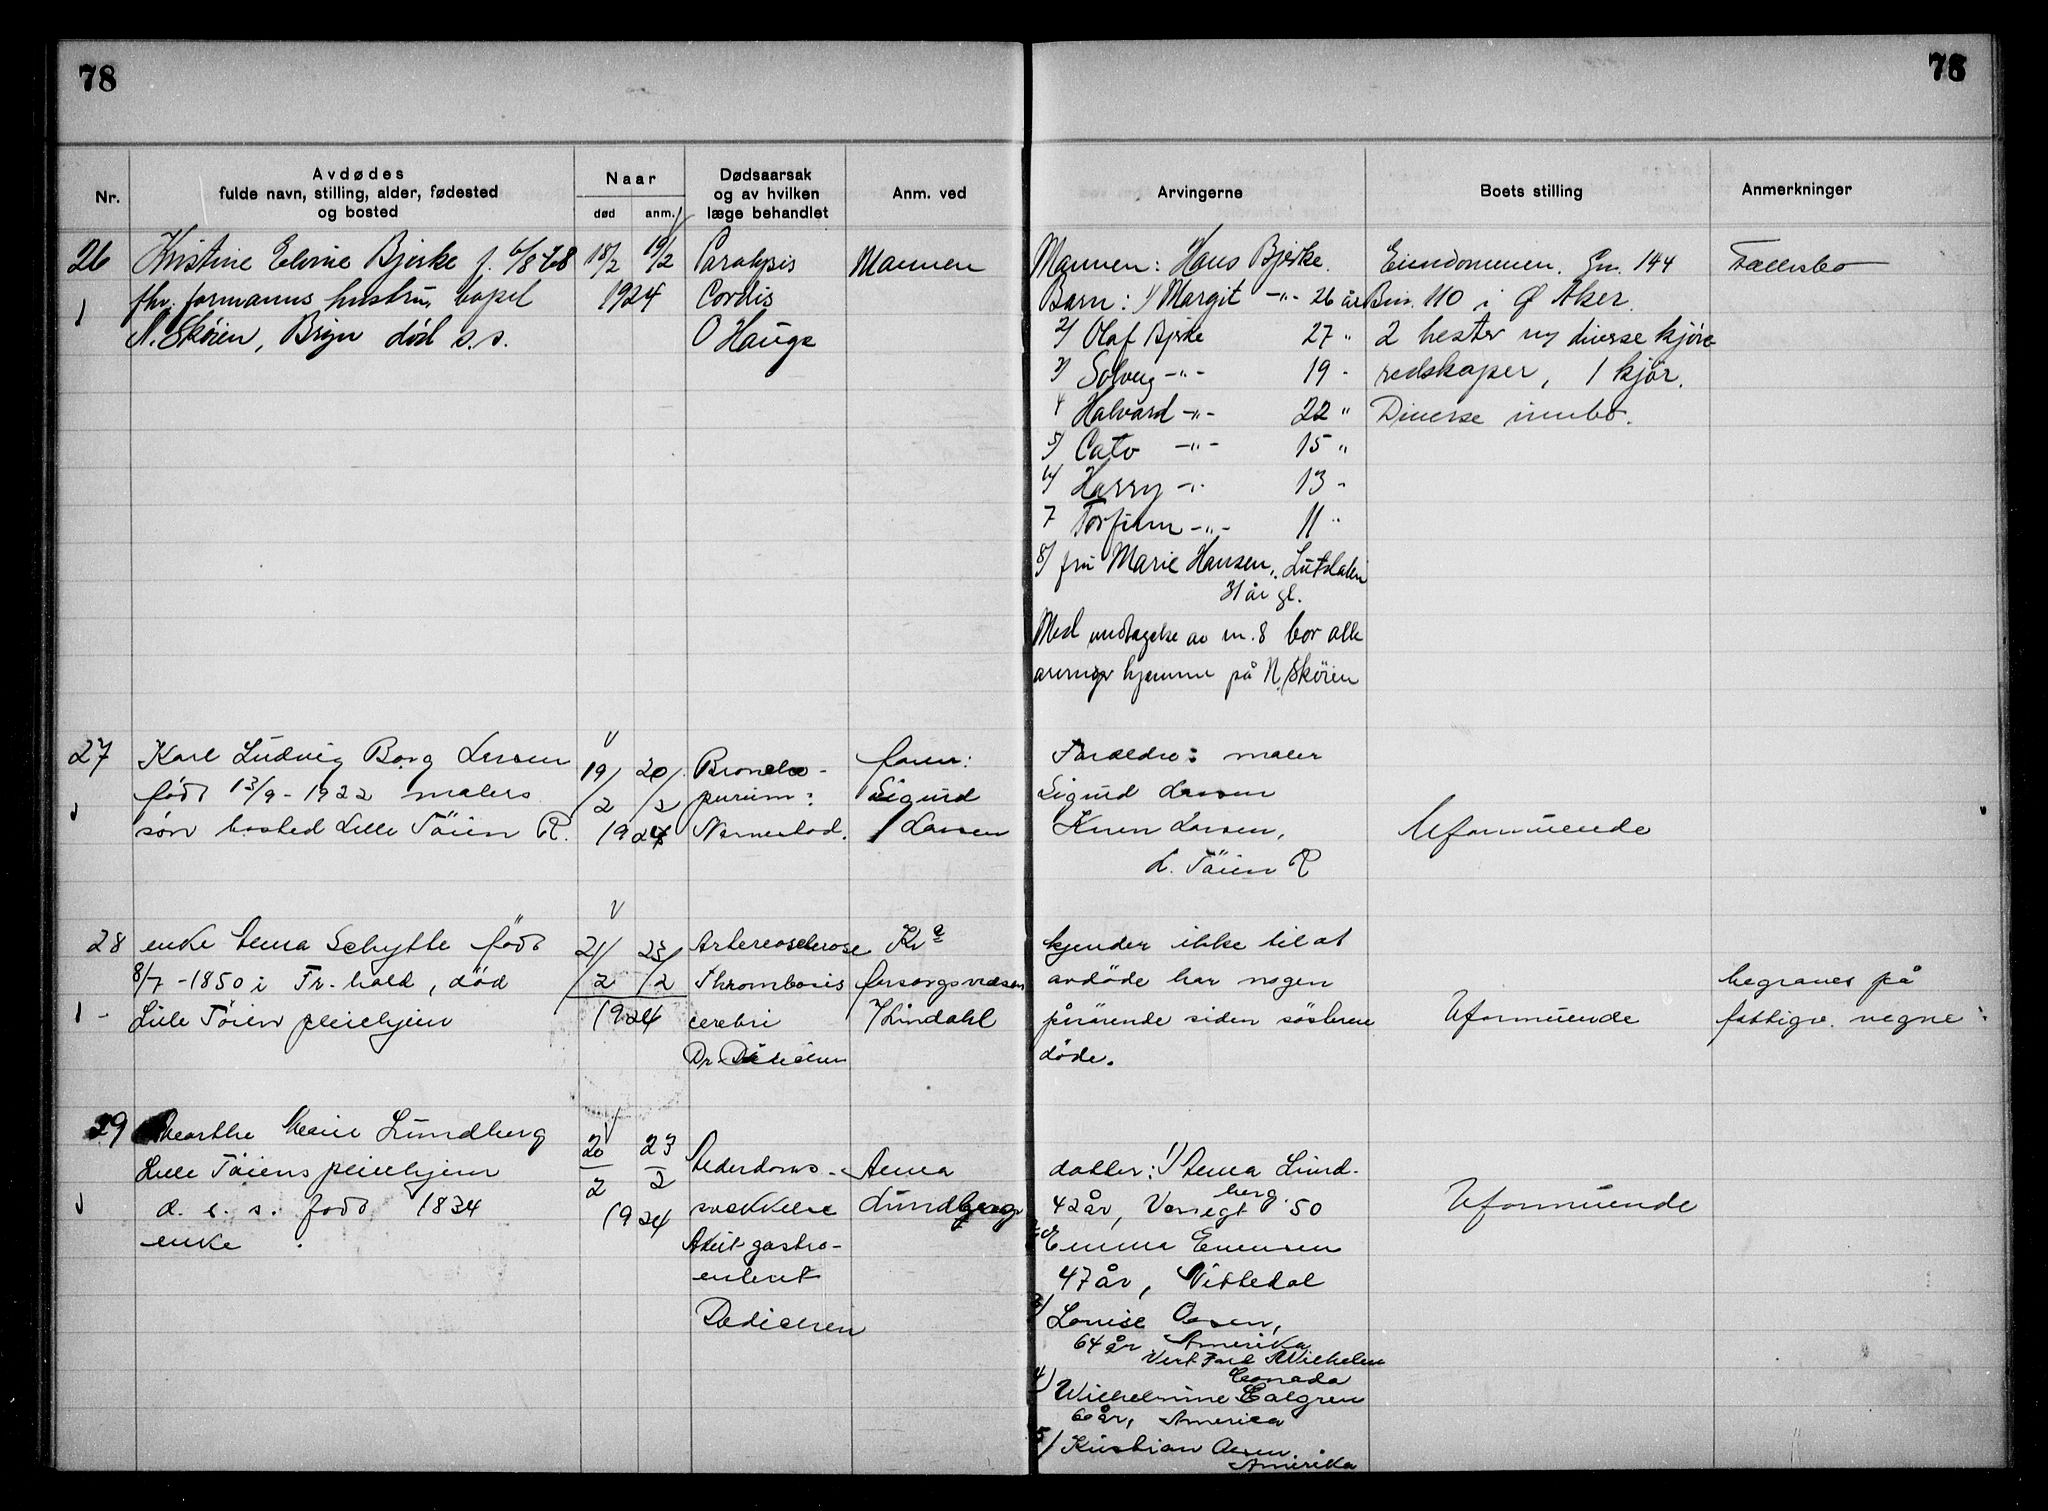 78
78
Nr.
Avdødes
fulde navn, stilling, alder, fødested
og bosted
Naar
død
anm.
Dødsaarsak
og av hvilken
læge behandlet
Anm. ved
Arvingerne
Boets stilling
Anmerkninger
26
Kristine Elvine Bjerke f. 6/8 68
fhv. formanns hustru, bopel
N. Skøien, Bryn død s.s.
18/2 19/2
1924
Paralysis
Cordis
O Hauge
Mannen
Mannen: Hans Bjerke.
Barn: 1/ Margit -"- 26 år
2/ Olaf Bjerke 27 "
3/ Solveig -"- 19 -
4 Halvard -"- 22 "
5/ Cato -"- 15 "
6/ Harry -"- 13 -
7 Torfinn -"- 11 "
8/ fru Marie Hansen,
31 år gl.
Med undtagelse av nr. 8 bor alle
arvinger hjemme på N. Skøien
Eiendommen. Gn. 144
Bnr. 110 i Ø Aker.
2 hester og diverse kjøre
redskaper, 1 kjør.
Diverse innbo.
Fællesbo
27
Karl Ludvig Borg Larsen
født 13/9 - 1922 malers
søn bosted Lille Töien R.
19/2 20/2
1924
Broncho-
pneum:
Narnestad.
faren:
Sigurd
Larsen
Foræeldre: maler
Sigurd Larsen
Larsen,
L. Töien R
Uformuende
28
enke Anna Schytte født
8/7 - 1850 i Fr.hald, död
Lille Töien pleiehjem
21/2 23/2
1924
Artereosclerose
Thrombosis
cerebri
Dr. Dedichen
Kr a
forsorgsvæsen
Lindahl
kjender ikke til at
avdöde har nogen
pårörende siden sösteren
döde.
Uformuende
begraves på
fattigv. regne:
29
Marthe Marie Lundberg
Lille Töiens pleiehjem
d. s. s. født 1834
enke
20/2 23/2
1924
Alderdoms-
svækkelse
Akut gastro-
enterit
Dedichen
Anna
Lundberg
datter: 1/ Anna Lund-
berg
42 år, 50
2 Emma Evensen
47 år, Nittedal
3/ Louise Olsen,
64 år Amerika
Canada
4/ Wilhelmine Calgren
60 år, America
5/ Kristian Olsen
Amerika
Uformuende